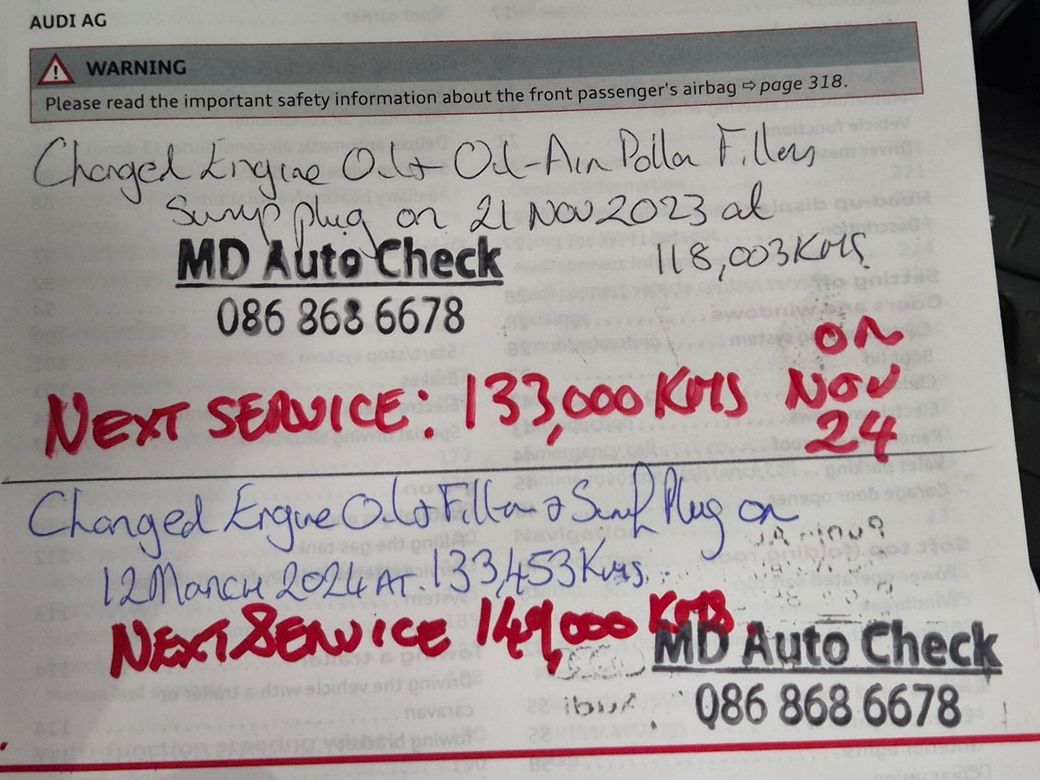 AUDI AG
WARNING
Please read the important safety information about the front passenger's airbag ⇨ page 318.
Changed Engine Oil + Oil-Air Pollen Filters
Sump plug on 21 Nov 2023 at
118,003 KMS
MD Auto Check
086 868 6678
NEXT SERVICE: 133,000 KMS ON NOV 24
Changed Engine Oil + Filter + Sump Plug on
12 March 2024 AT 133,453 Kms.
NEXT SERVICE 149,000 KMS
MD Auto Check
086 868 6678